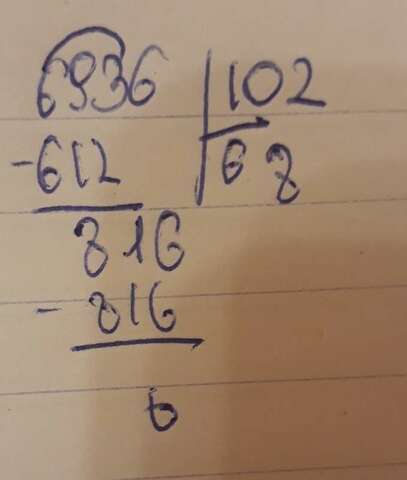 6936 102
-612 68
816
-816
0